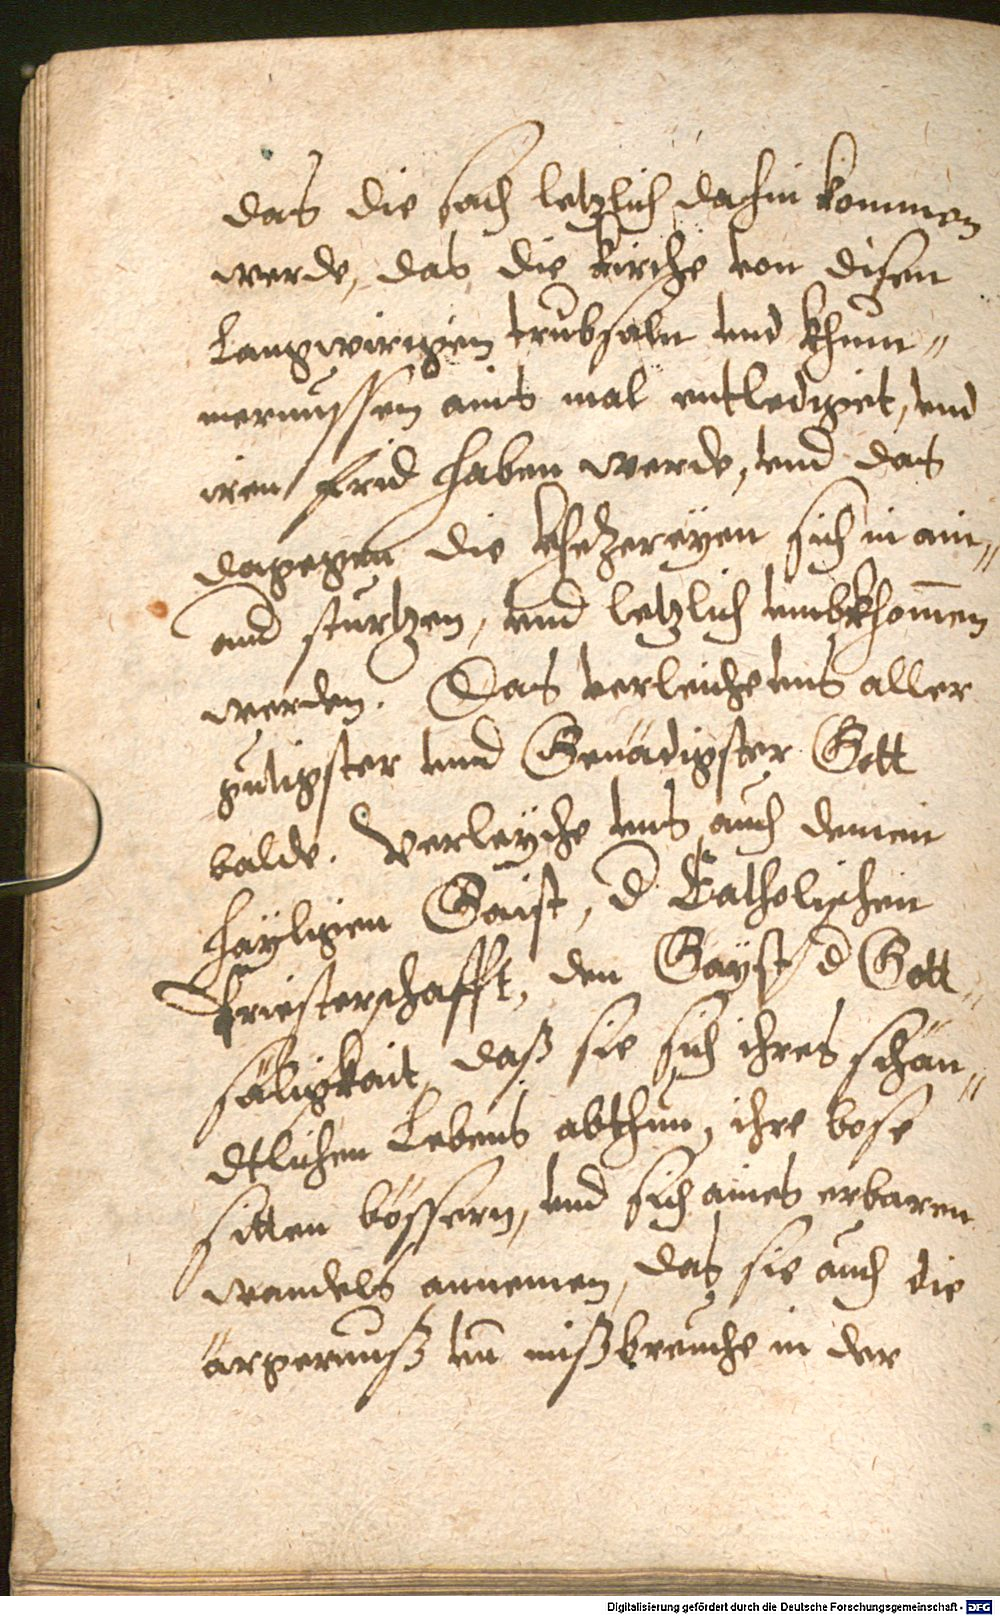 das die sach letzlich dahin kommen
werde, das die kirche von disen
Langwirigen trubsaln vnd khum„
mernussen ains mal entlediget, vnd
iren frid haben werde, vnd das
dagegen die khetzereyen sich in ain„
and sturtzen, vnd letzlich vmbkhom̄en
werden. Das verleiche vns aller
gutigster vnnd Genädigster Gott
balde. Verleyche vns auch deinen
hayligen Gaist, d Catholischen
Priesterschafft, den Gayst d Gott„
säligkait, daß sie sich ihres schän„
dtlichen Lebens abthun, ihre bose
sitten bössern, vnd sich aines erbaren
wandels annemen, das sie auch die
ärgernuß vn̄ mißbreuche in der
Digitalisierung gefördert durch die Deutsche Forschungsgemeinschaft - DFG